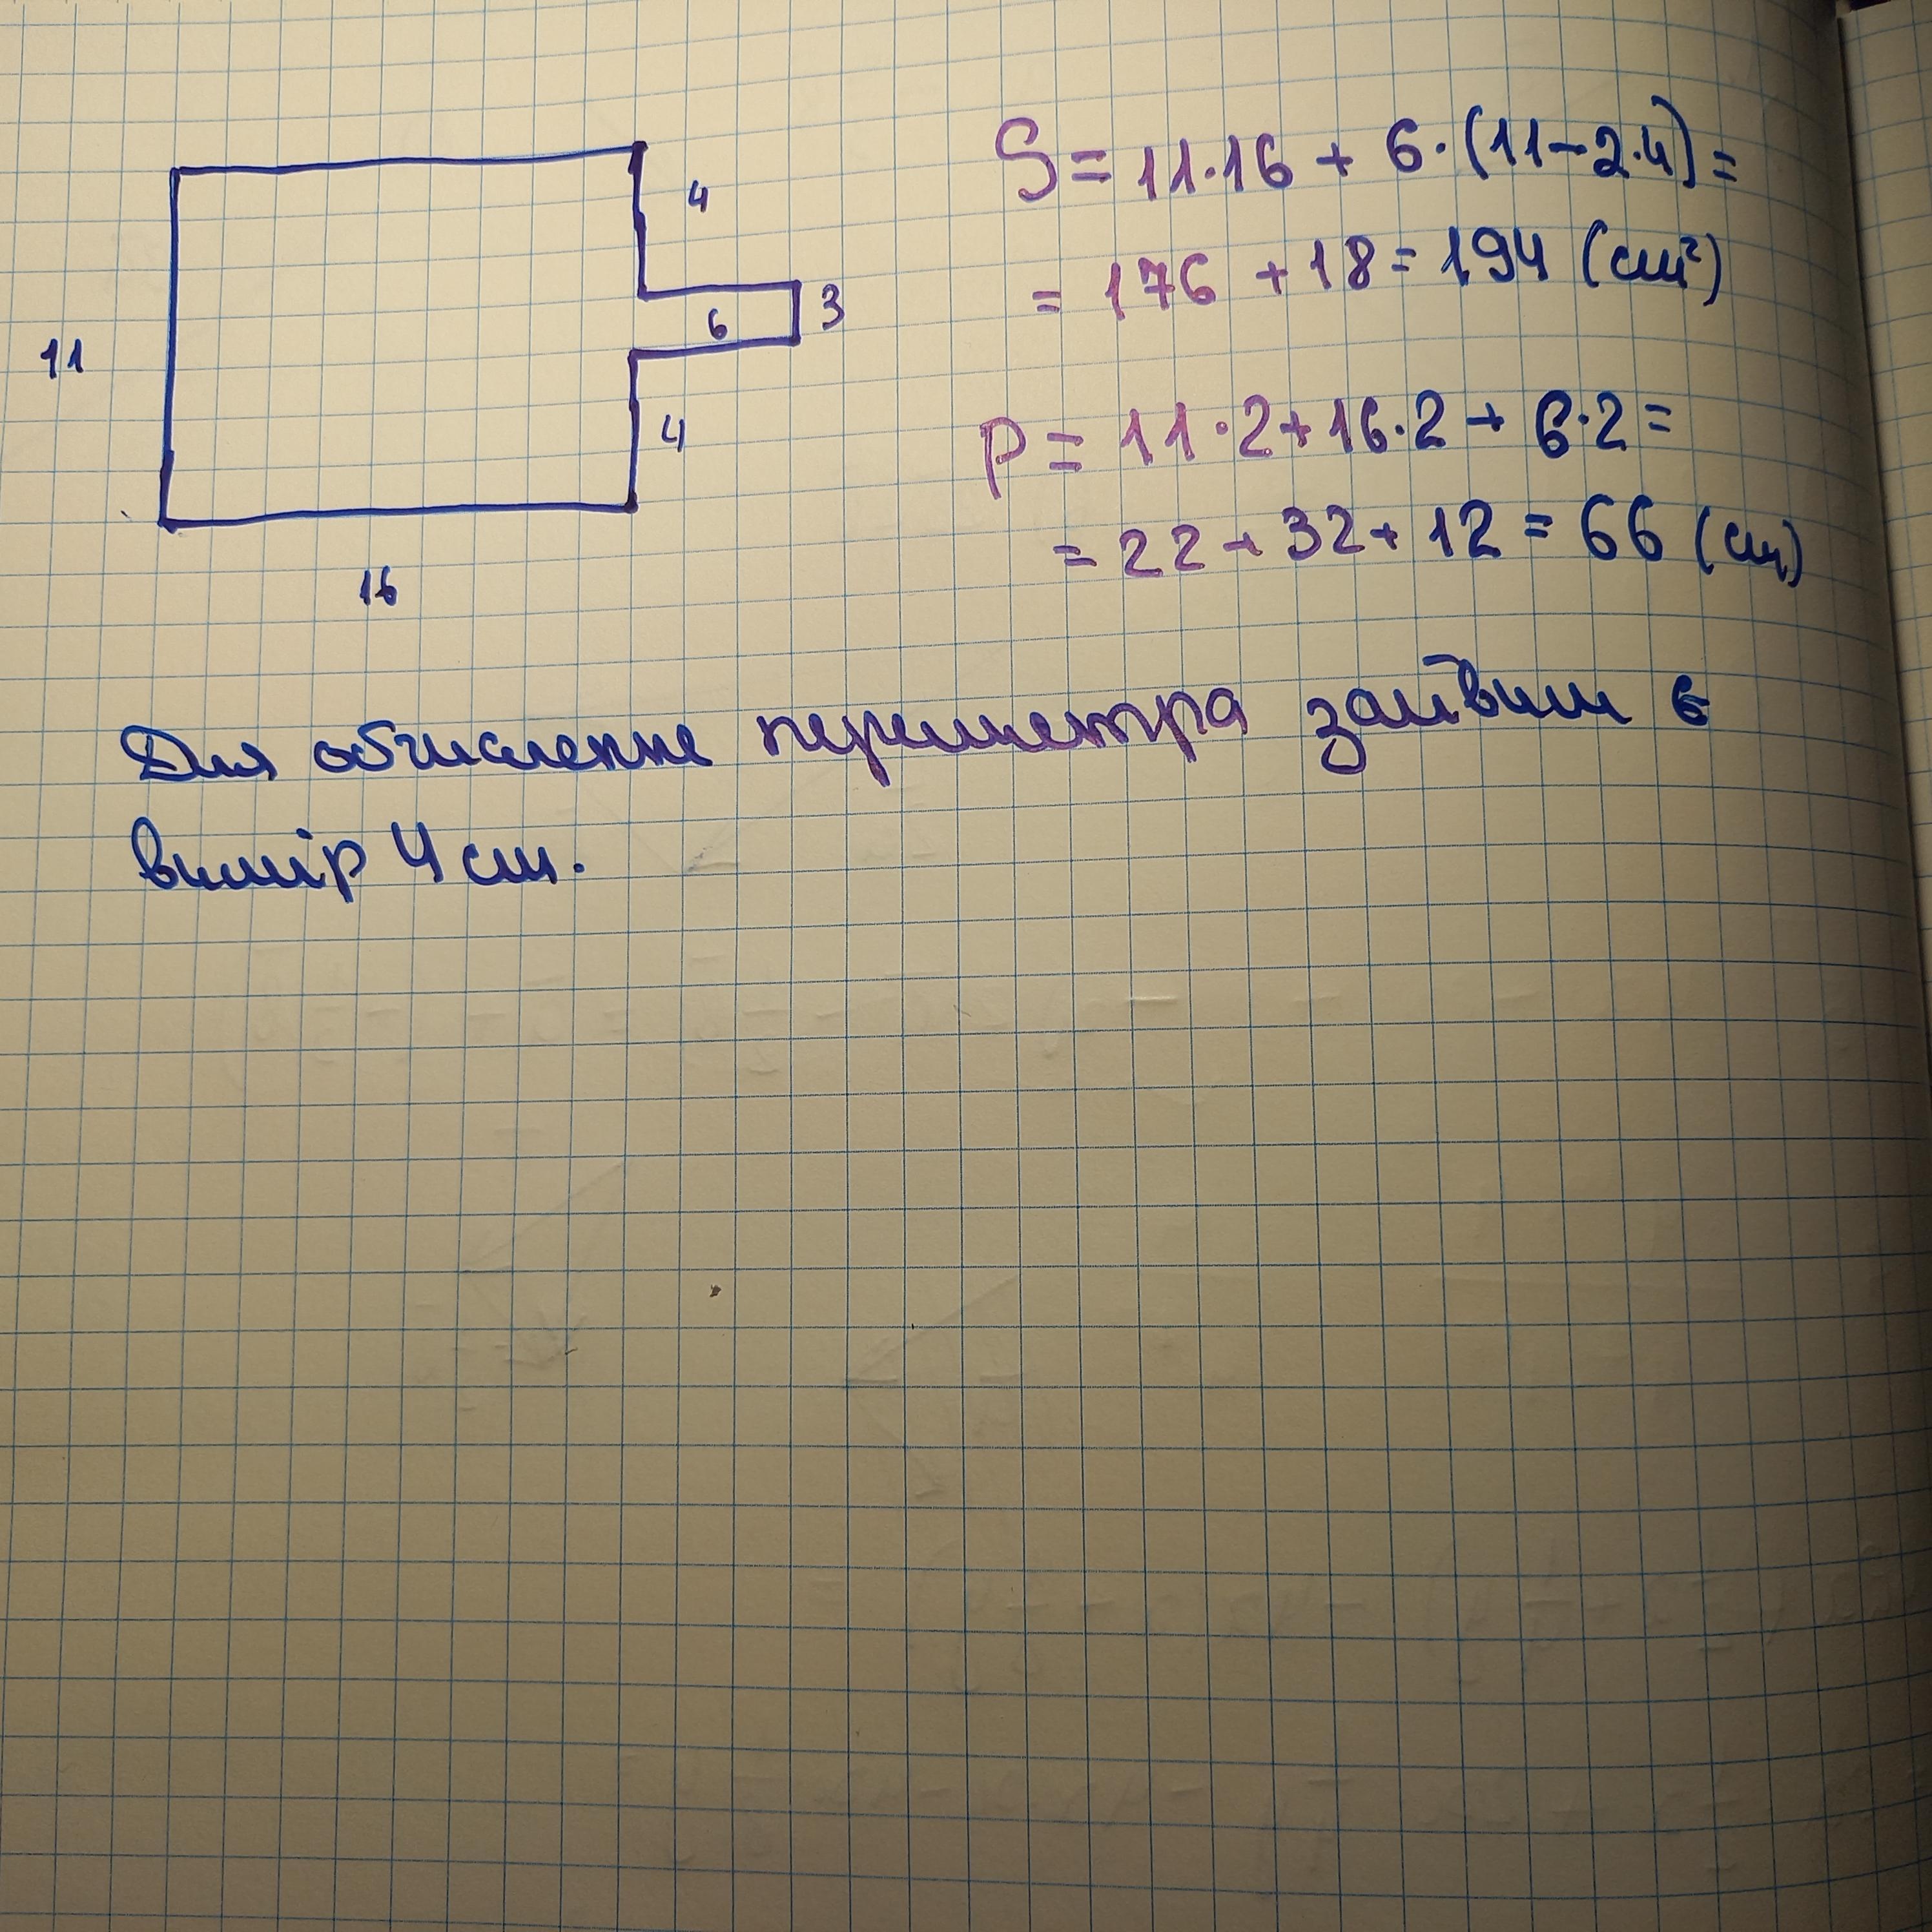 4
3
6
11
4
16
S = 11·16 + 6·(11-2·4) =
= 176 + 18 = 194 (см²)
P = 11·2+16·2 + 6·2 =
= 22 + 32 + 12 = 66 (см)
Для обчислення периметра зайвим є
вимір 4 см.